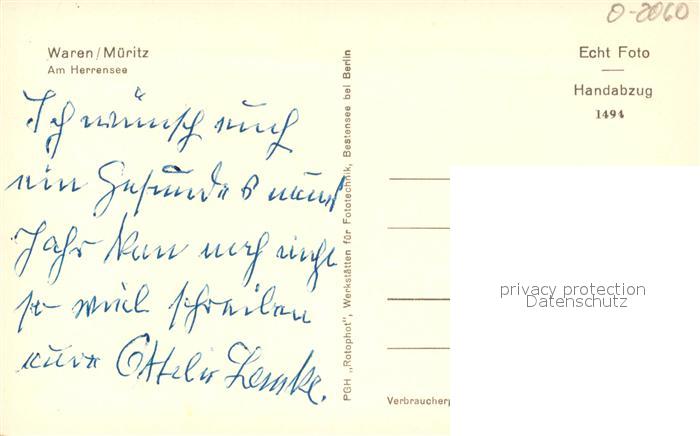 O-2060
Waren/Müritz
Am Herrensee
Echt Foto
Handabzug
1494
Ich wünsch euch
ein Gesundes neues
Jahr kan noch nicht
so viel schreiben
eure Lemke.
PGH „Rotophot", Werkstätten für Fototechnik, Bestensee bei Berlin
privacy protection
Datenschutz
Verbraucherp